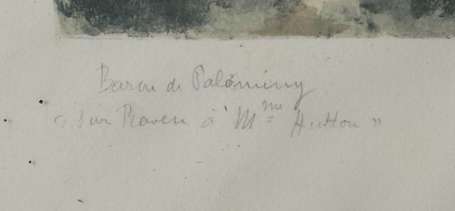 Baron de Palaminy
« sur Raven à Mme Hutton »